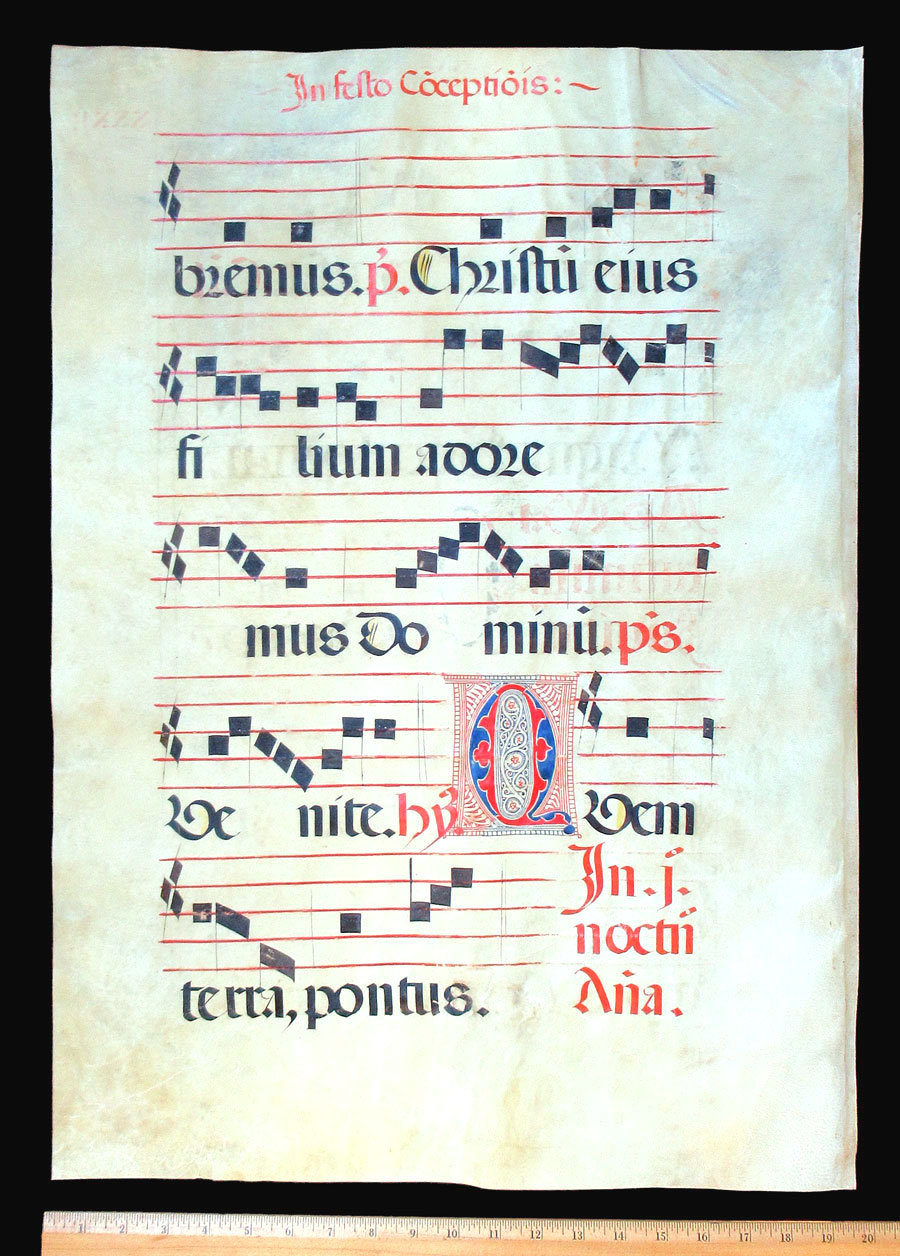 In festo Cõceptiõis:~
bremus. p̃. Christũ eius
fi lium adore
mus Do minũ. p̃s.
Ve nite. hỹ. Q Vem
terra, pontus.
In . j.
noctũ
Añа.
1 2 3 4 5 6 7 8 9 10 11 12 13 14 15 16 17 18 19 20